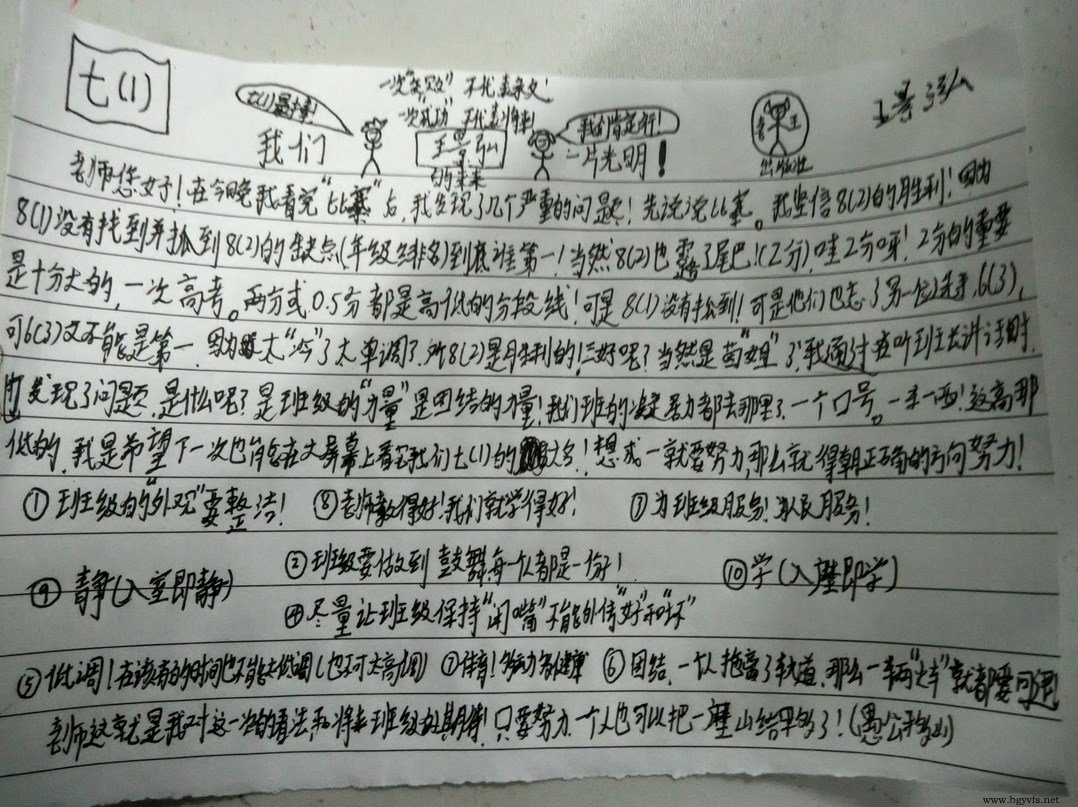 七(1)
七(1)最棒!
我们
一次"失败" 不代表永久!
一次"成功" 不代表将来!
王景弘
的未来
我们肯定行!
一片光明!
王景弘
老师您好!在今晚我看完"比赛"后,我发现了几个严重的问题!先说说比赛。我坚信8(2)的胜利!因为
8(1)没有找到并抓到8(2)的缺点(年级排名)到底谁第一!当然8(2)也露了尾巴!(2分),哇2分呀!2分的重要
是十分大的,一次高考。两分或0.5分都是高低的分段线!可是8(1)没有抓到!可是他们也忘了另一位选手,6(3),
可6(3)又不能是第一,因为太"冷"了太单调了.所8(2)是胜利的!三好呢?当然是苟"姐"了!我通过在听到王长讲话时,
也发现了问题,是什么呢?是班级的"力量"是团结的力量!我们班的凝力都去那里了.一个口号。一东一西!这高那
低的,我是希望下一次也能在大屏幕上看到我们七(1)的大名!想成一就要努力,那么就得朝正确的方向努力!
①班级的"外观"要整洁!
⑧老师教得好!我们就学得好!
③为班级服务!为民服务!
⑨静(入室即静)
②班级要做到鼓舞,每一个人都是一份!
⑩学(入座即学)
④尽量让班级保持"闭嘴"不能外传"好"和"坏"
⑤低调!在该有的时间也不能太低调(也不可太高调)
⑦体育!劳动者健康
⑥团结,一个人拖离了轨道,那么一辆"火车"就都要
老师这就是我对这一次的看法和将来班级的期待!只要努力,一个人也可以把一座山给移了!(愚公移山)
www.bgyvfs.net